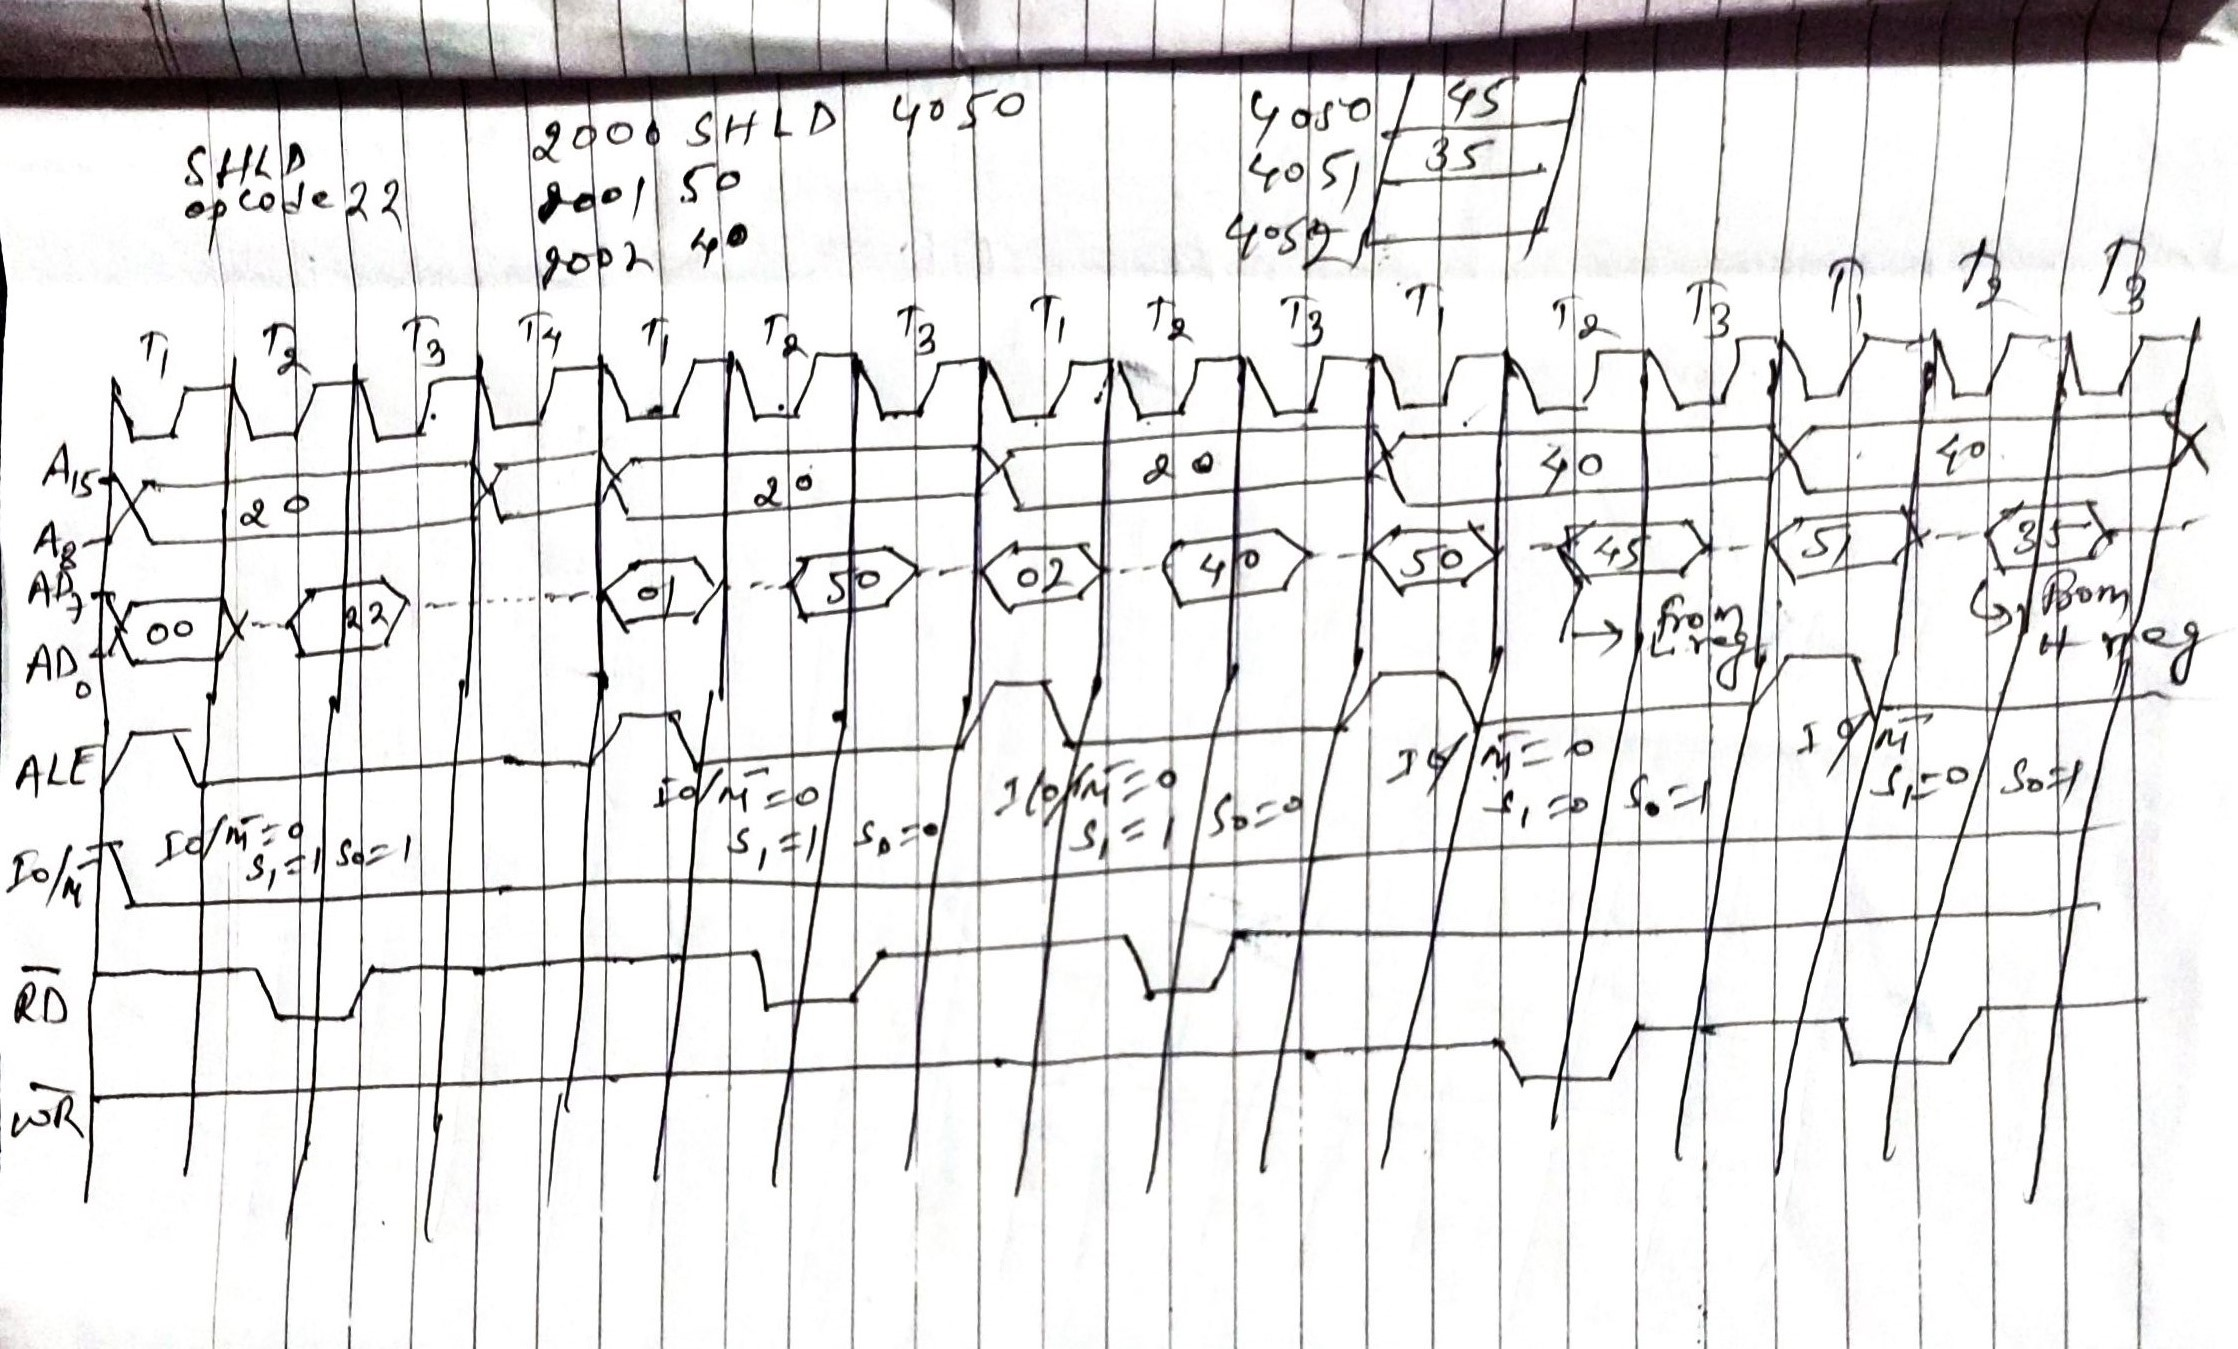 2000 SHLD 4050
4050 45
SHLD
opcode 22
2001 50
4051 35
2002 40
4052
T1 T2 T3 T4 T1 T2 T3 T1 T2 T3 T1 T2 T3 T1 T2 T3
A15
A8
20 20 20 40 40
AD7
AD0
00 22 01 50 02 40 50 45 51 35
From L reg
From H reg
ALE
IO/M̅=0 S1=1 S0=1
IO/M̅=0 S1=1 S0=0
IO/M̅=0 S1=1 S0=0
IO/M̅=0 S1=0 S0=1
IO/M̅ S1=0 S0=1
IO/M̅
R̅D̅
W̅R̅